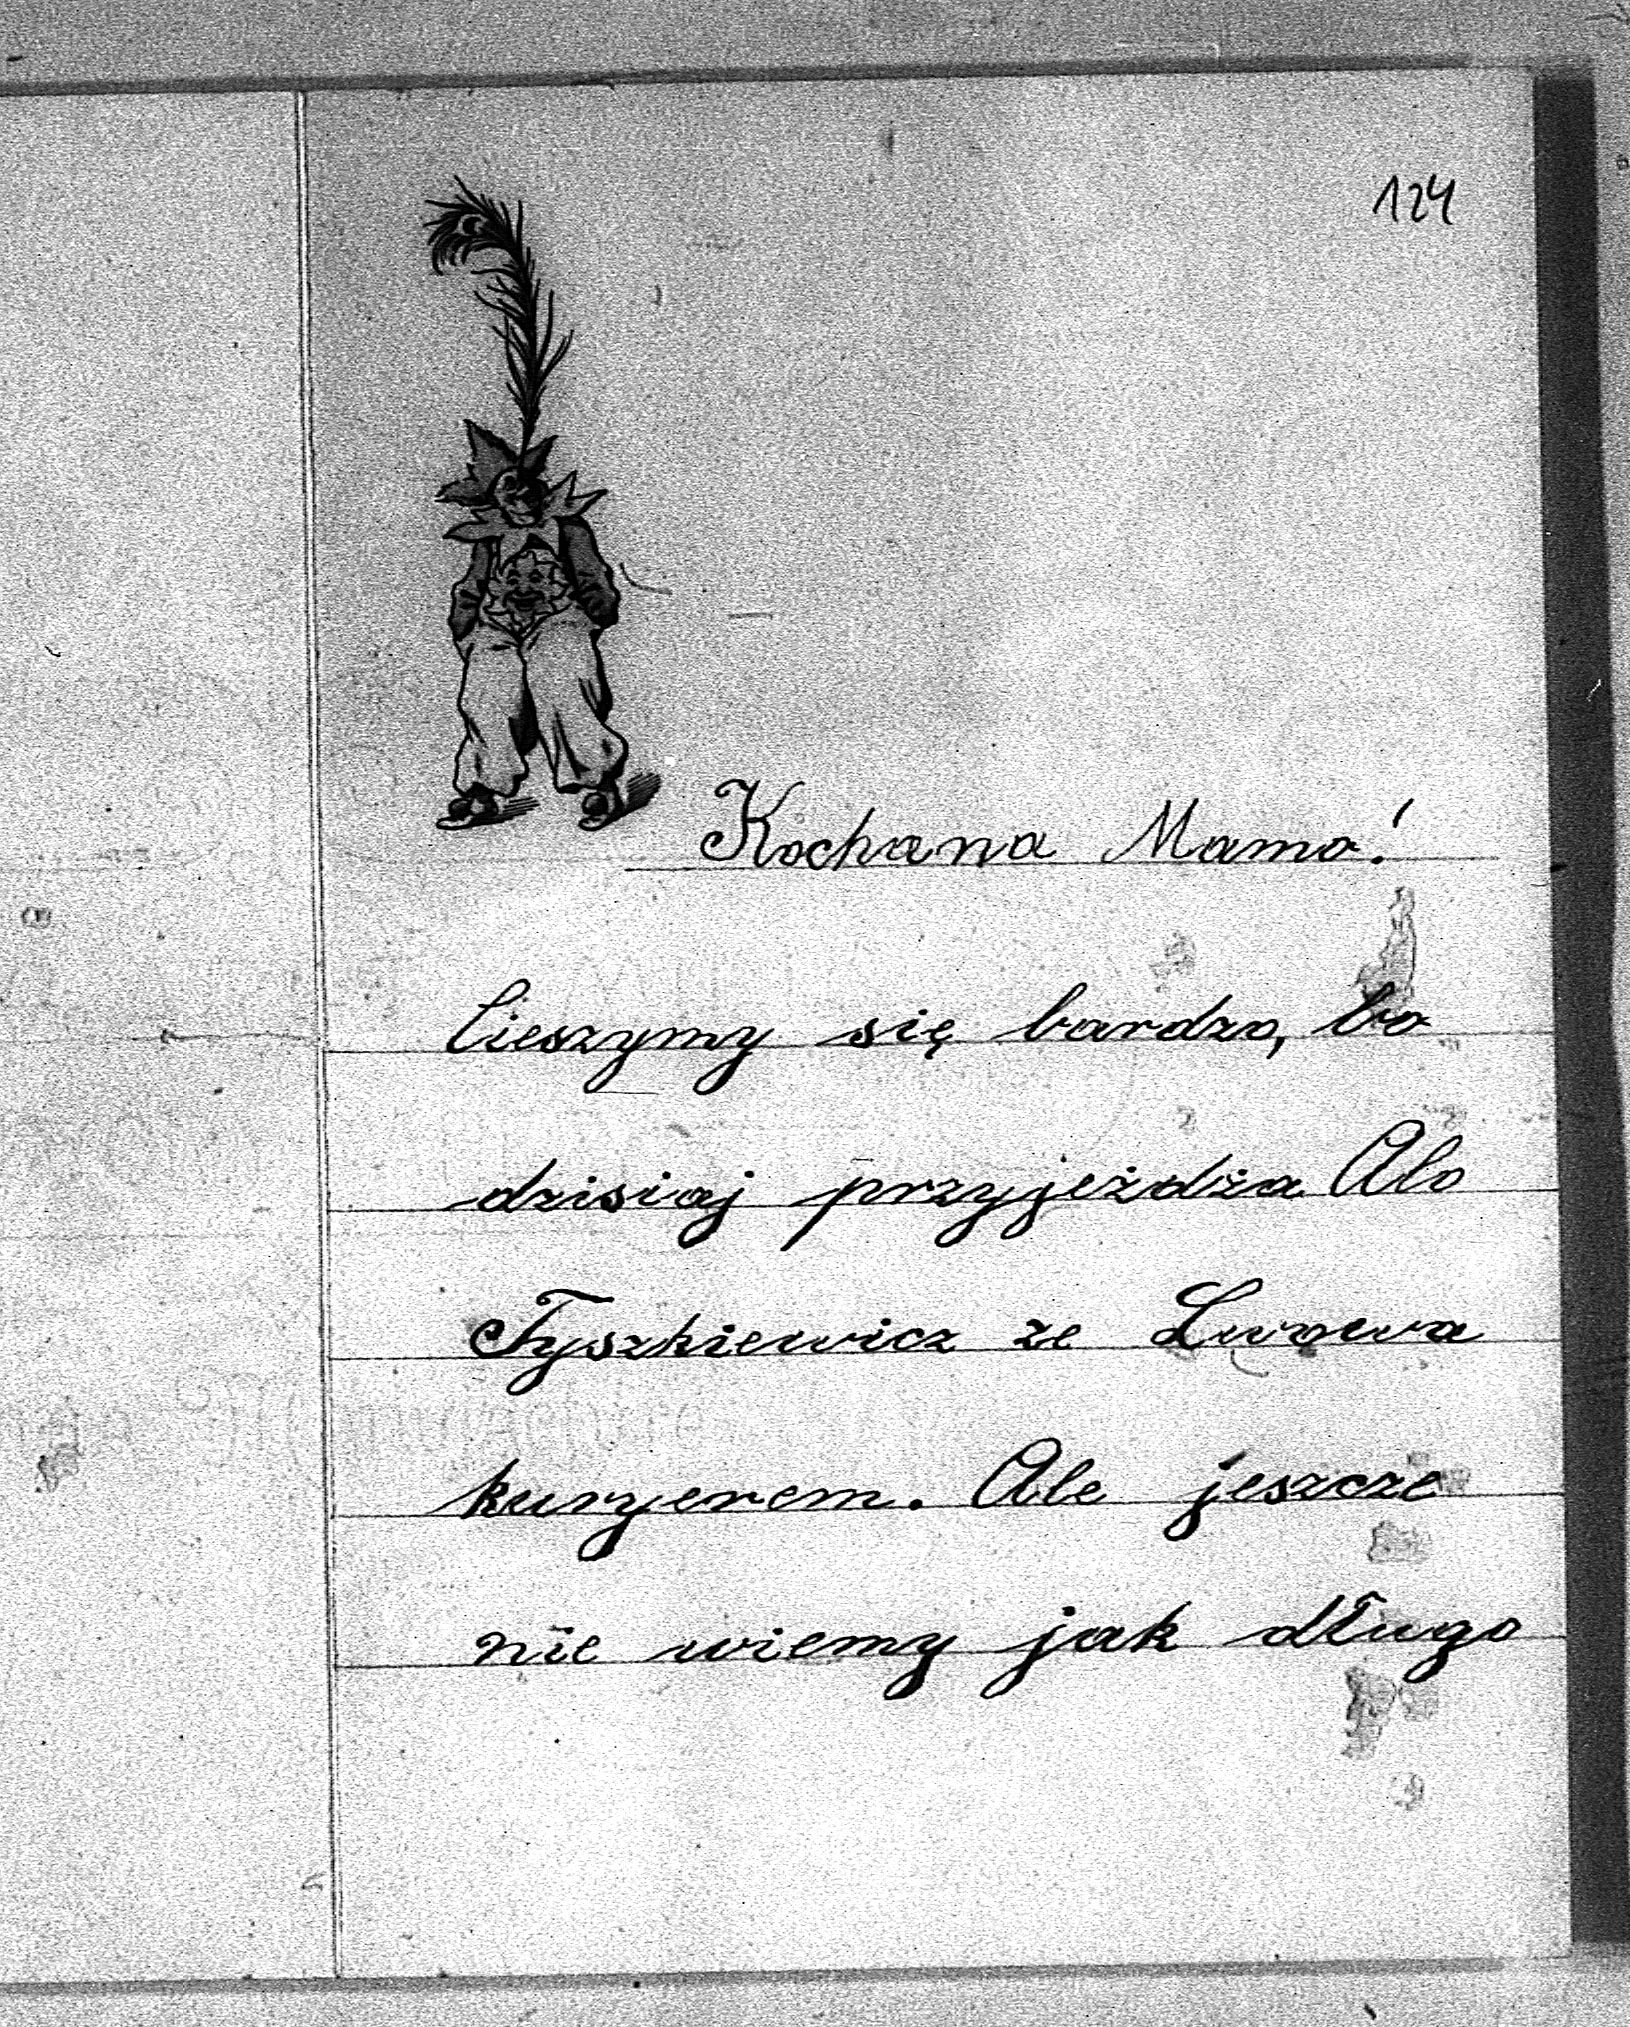 124
Kochana Mamo!
Cieszymy się bardzo, bo
dzisiaj przyjeżdża Alo
Tyszkiewicz ze Lwowa
kuryerem. Ale jeszcze
nie wiemy jak długo